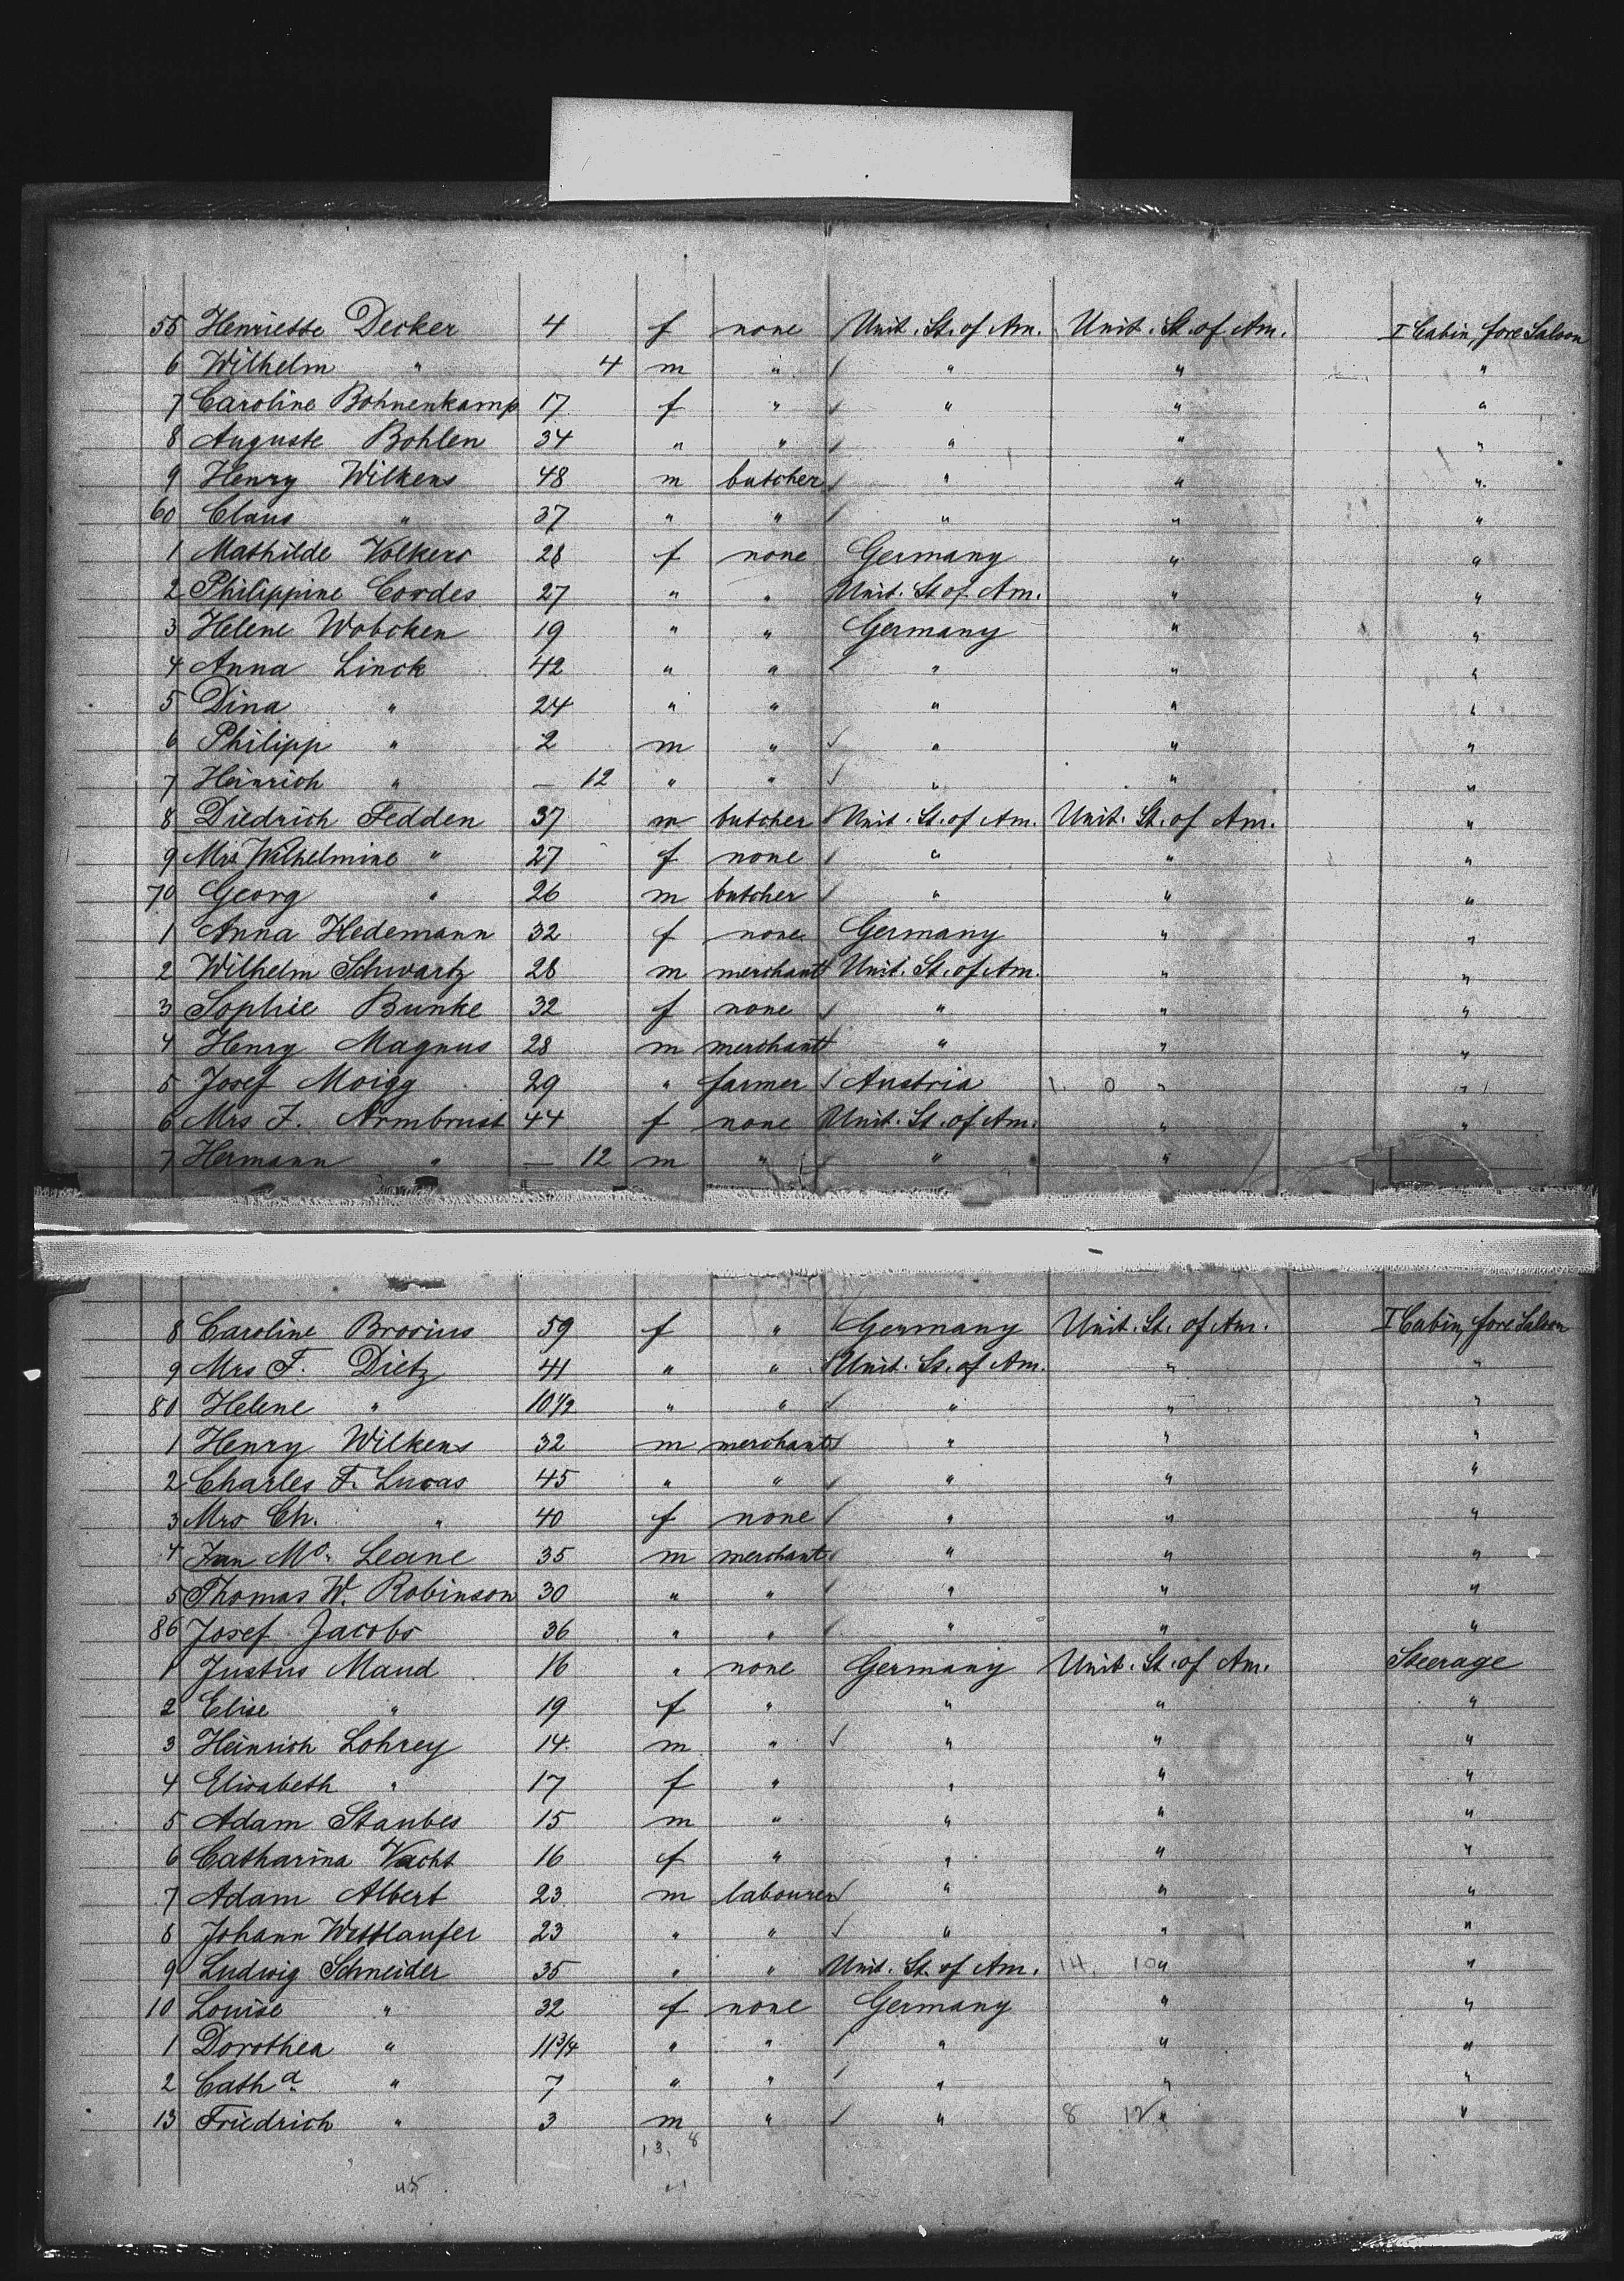 55 Henriette Decker 4 f none Unit. St. of Am. Unit. St. of Am. I Cabin, fore Saloon
6 Wilhelm " 4 m " " " "
7 Caroline Bohnenkamp 17 f " " " "
8 Auguste Bohlen 34 " " " " "
9 Henry Wilkens 48 m butcher " " "
60 Claus " 37 " " " " "
1 Mathilde Volkers 28 f none Germany " "
2 Philippine Cordes 27 " " Unit. St. of Am. " "
3 Helene Wobcken 19 " " Germany " "
4 Anna Linck 42 " " " " "
5 Dina " 24 " " " " "
6 Philipp " 2 m " " " "
7 Heinrich " — 12 " " " " "
8 Diedrich Fedden 37 m butcher Unit. St. of Am. Unit. St. of Am. "
9 Mrs Wilhelmine " 27 f none " " "
70 Georg " 26 m butcher " " "
1 Anna Hedemann 32 f none Germany " "
2 Wilhelm Schwartz 28 m merchant Unit. St. of Am. " "
3 Sophie Bunke 32 f none " " "
4 Henry Magnus 28 m merchant " " "
5 Josef Moigg 29 " farmer Austria 1 0 " "
6 Mrs F. Armbrust 44 f none Unit. St. of Am. " "
7 Hermann " — 12 m " " "
8 Caroline Brosius 59 f " Germany Unit. St. of Am. I Cabin, fore Saloon
9 Mrs F. Dietz 41 " " Unit. St. of Am. " "
80 Helene " 10 1/2 " " " " "
1 Henry Wilkens 32 m merchant " " "
2 Charles F. Lucas 45 " " " " "
3 Mrs Ch. " 40 f none " " "
4 Mc. Leane 35 m merchant " " "
5 Thomas W. Robinson 30 " " " " "
86 Josef Jacobs 36 " " " " "
1 Justus Maud 16 " none Germany Unit. St. of Am. Steerage
2 Elise " 19 f " " " "
3 Heinrich Lohrey 14 m " " " "
4 Elisabeth " 17 f " " " "
5 Adam Staubes 15 m " " " "
6 Catharina Vacht 16 f " " " "
7 Adam Albert 23 m labourer " " "
8 Johann Wettlaufer 23 " " " " "
9 Ludwig Schneider 35 " " Unit. St. of Am. 14. 10 " "
10 Louise " 32 f none Germany " "
1 Dorothea " 11 3/4 " " " " "
2 Catha " 7 " " " " "
13 Friedrich " 3 m " " 8 12 " "
13. 8